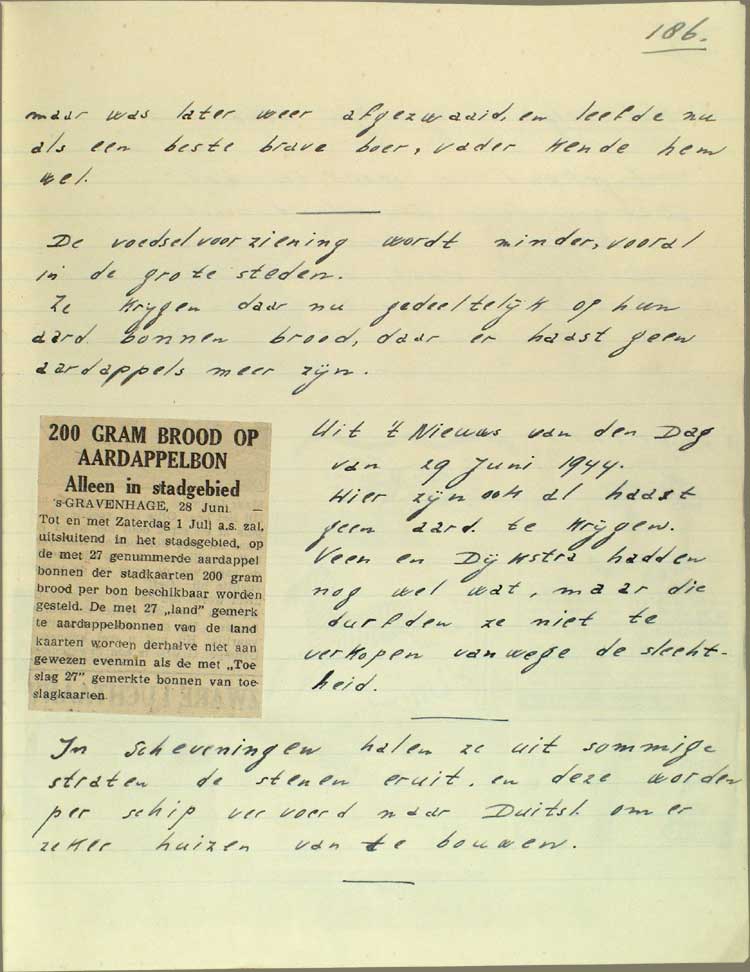 186.
maar was later weer afgezwaaid, en leefde nu
als een beste brave boer, vader kende hem
wel.
De voedselvoorziening wordt minder, vooral
in de grote steden.
Ze krijgen daar nu gedeeltelijk op hun
aard. bonnen brood, daar er haast geen
aardappels meer zijn.
200 GRAM BROOD OP
AARDAPPELBON
Alleen in stadgebied
's-GRAVENHAGE, 28 Juni —
Tot en met Zaterdag 1 Juli a.s. zal,
uitsluitend in het stadsgebied, op
de met 27 genummerde aardappel
bonnen der stadkaarten 200 gram
brood per bon beschikbaar worden
gesteld. De met 27 „land" gemerk
te aardappelbonnen van de land
kaarten worden derhalve niet aan
gewezen evenmin als de met „Toe
slag 27" gemerkte bonnen van toe-
slagkaarten.
Uit 't Nieuws van den Dag
van 29 Juni 1944.
Hier zijn ook al haast
geen aard. te krijgen.
Veen en Dijkstra hadden
nog wel wat, maar die
durfden ze niet te
verkopen vanwege de slecht-
heid.
In Scheveningen halen ze uit sommige
straten de stenen eruit, en deze worden
per schip vervoerd naar Duitsl. om er
zeker huizen van te bouwen.